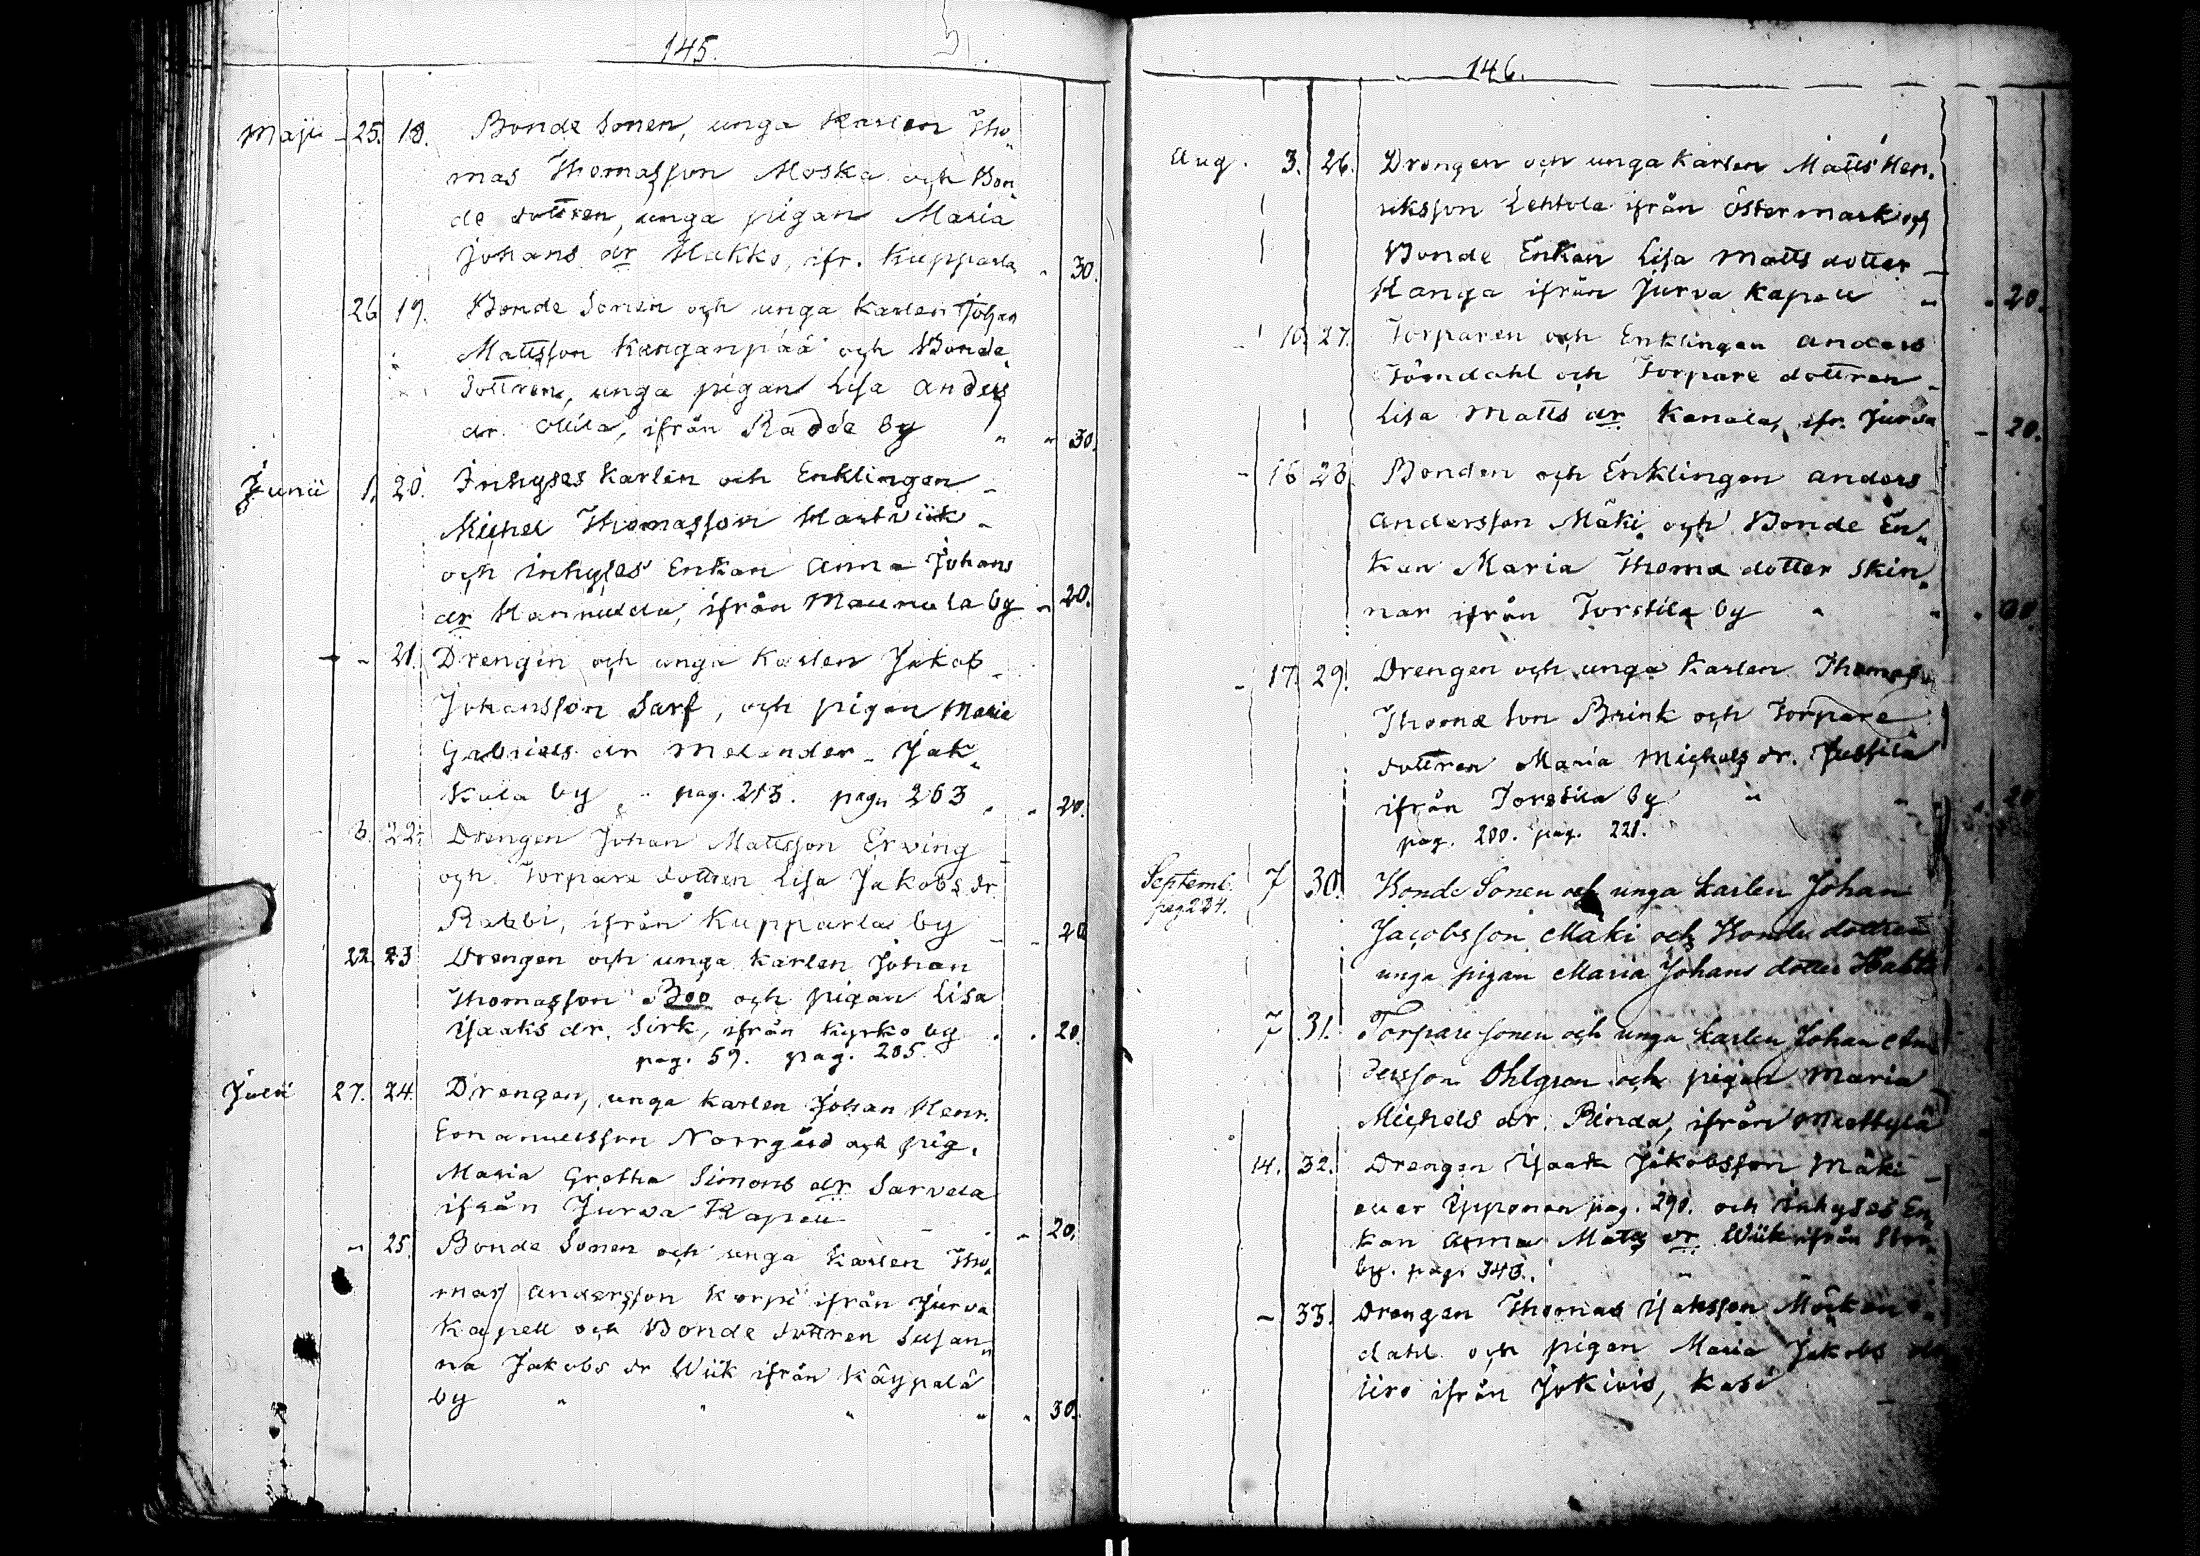 145.
Maji - 25. 18. Bonde Sonen, unga Karlen Tho„
mas Thomasson Moska och Bon„
de dottren, unga pigan Maria
Johans dr Hakko, ifr. Kupparla „ 30.
26 19. Bonde Sonen och unga Karlen Johan
Mattsson Kanganpää och Bonde
dottren, unga pigan Lisa Anders
dr. Ollila, ifrån Radde by „ „ 30.
Junii 1. 20. Inhyses Karlen och Enklingen -
Michel Thomasson Hartviik -
och inhyses Enkan Anna Johans
dr Hannukla, ifrån Maunula by „ 20.
- - 21. Drengen och unga Karlen Jakob -
Johansson Sarf, och pigan Maria
Gabriels dr Melender - Jak„
kula by „ pag. 213. pag. 263 „ „ 20.
6. 22. Drengen Johan Mattsson Erving -
och Torpare dottren Lisa Jakobs dr
Rabbi, ifrån Kupparla by - - 20
22. 23 Drengen och unga Karlen Johan
Thomasson Boo och pigan Lisa
Isaaks dr. Sirk, ifrån Kyrko by . . 20.
pag. 59. pag. 205.
Julii 27. 24. Drengen, unga Karlen Johan Henr.
Emanuelsson Norrgård och pig.
Maria Gretha Simons dr Sarvela
ifrån Jurva Kapell - „ - 20.
„ 25. Bonde Sonen och unga Karlen Tho„
mas Andersson Korpi ifrån Jurva
Kapell och Bonde dottren Susan„
na Jakobs dr Wiik ifrån Käypälä
by „ „ „ „ „ 30.
146.
Aug. 3. 26. Drengen och unga Karlen Matts Hen„
riksson Lehtola ifrån Östermark och
Bonde Enkan Lisa Matts dotter -
Kanga ifrån Jurva Kapell „ „ 20.
- 10. 27. Torparen och Enklingen Anders
Törndahl och Torpare dottren -
Lisa Matts dr Kanala, ifr. Jurva - 20.
- 16 28 Bonden och Enklingen Anders
Andersson Mäki och Bonde En„
kan Maria Thomæ dotter Skin„
nar ifrån Torstila by „ „ „
- 17. 29. Drengen och unga Karlen Thomas
Thomæ Son Brink och Torpare
dottren Maria Michels dr. Jussila
ifrån Torstila by „ „ 20
pag. 200. pag. 221.
Septemb. 7 30. Bonde Sonen och unga karlen Johan
pag 234. Jacobsson Mäki och Bonde dottren
unga pigan Maria Johans dotter
7 31. Torpare sonen och unga karlen Johan An
dersson Ohlgren och pigan Maria
Michels dr. Rinda, ifrån
14. 32. Drengen Isaak Jakobsson Mäki -
eller Ypponen pag. 290. och inhyses En„
kan Anna Matts dr Wiik ifrån Stor„
by. pag. 343. „
- 33. Drengen Thomas Isaksson Mörken„
dahl och pigan Maria Jakobs dr
Iiro ifrån Jokivis, Kabi -